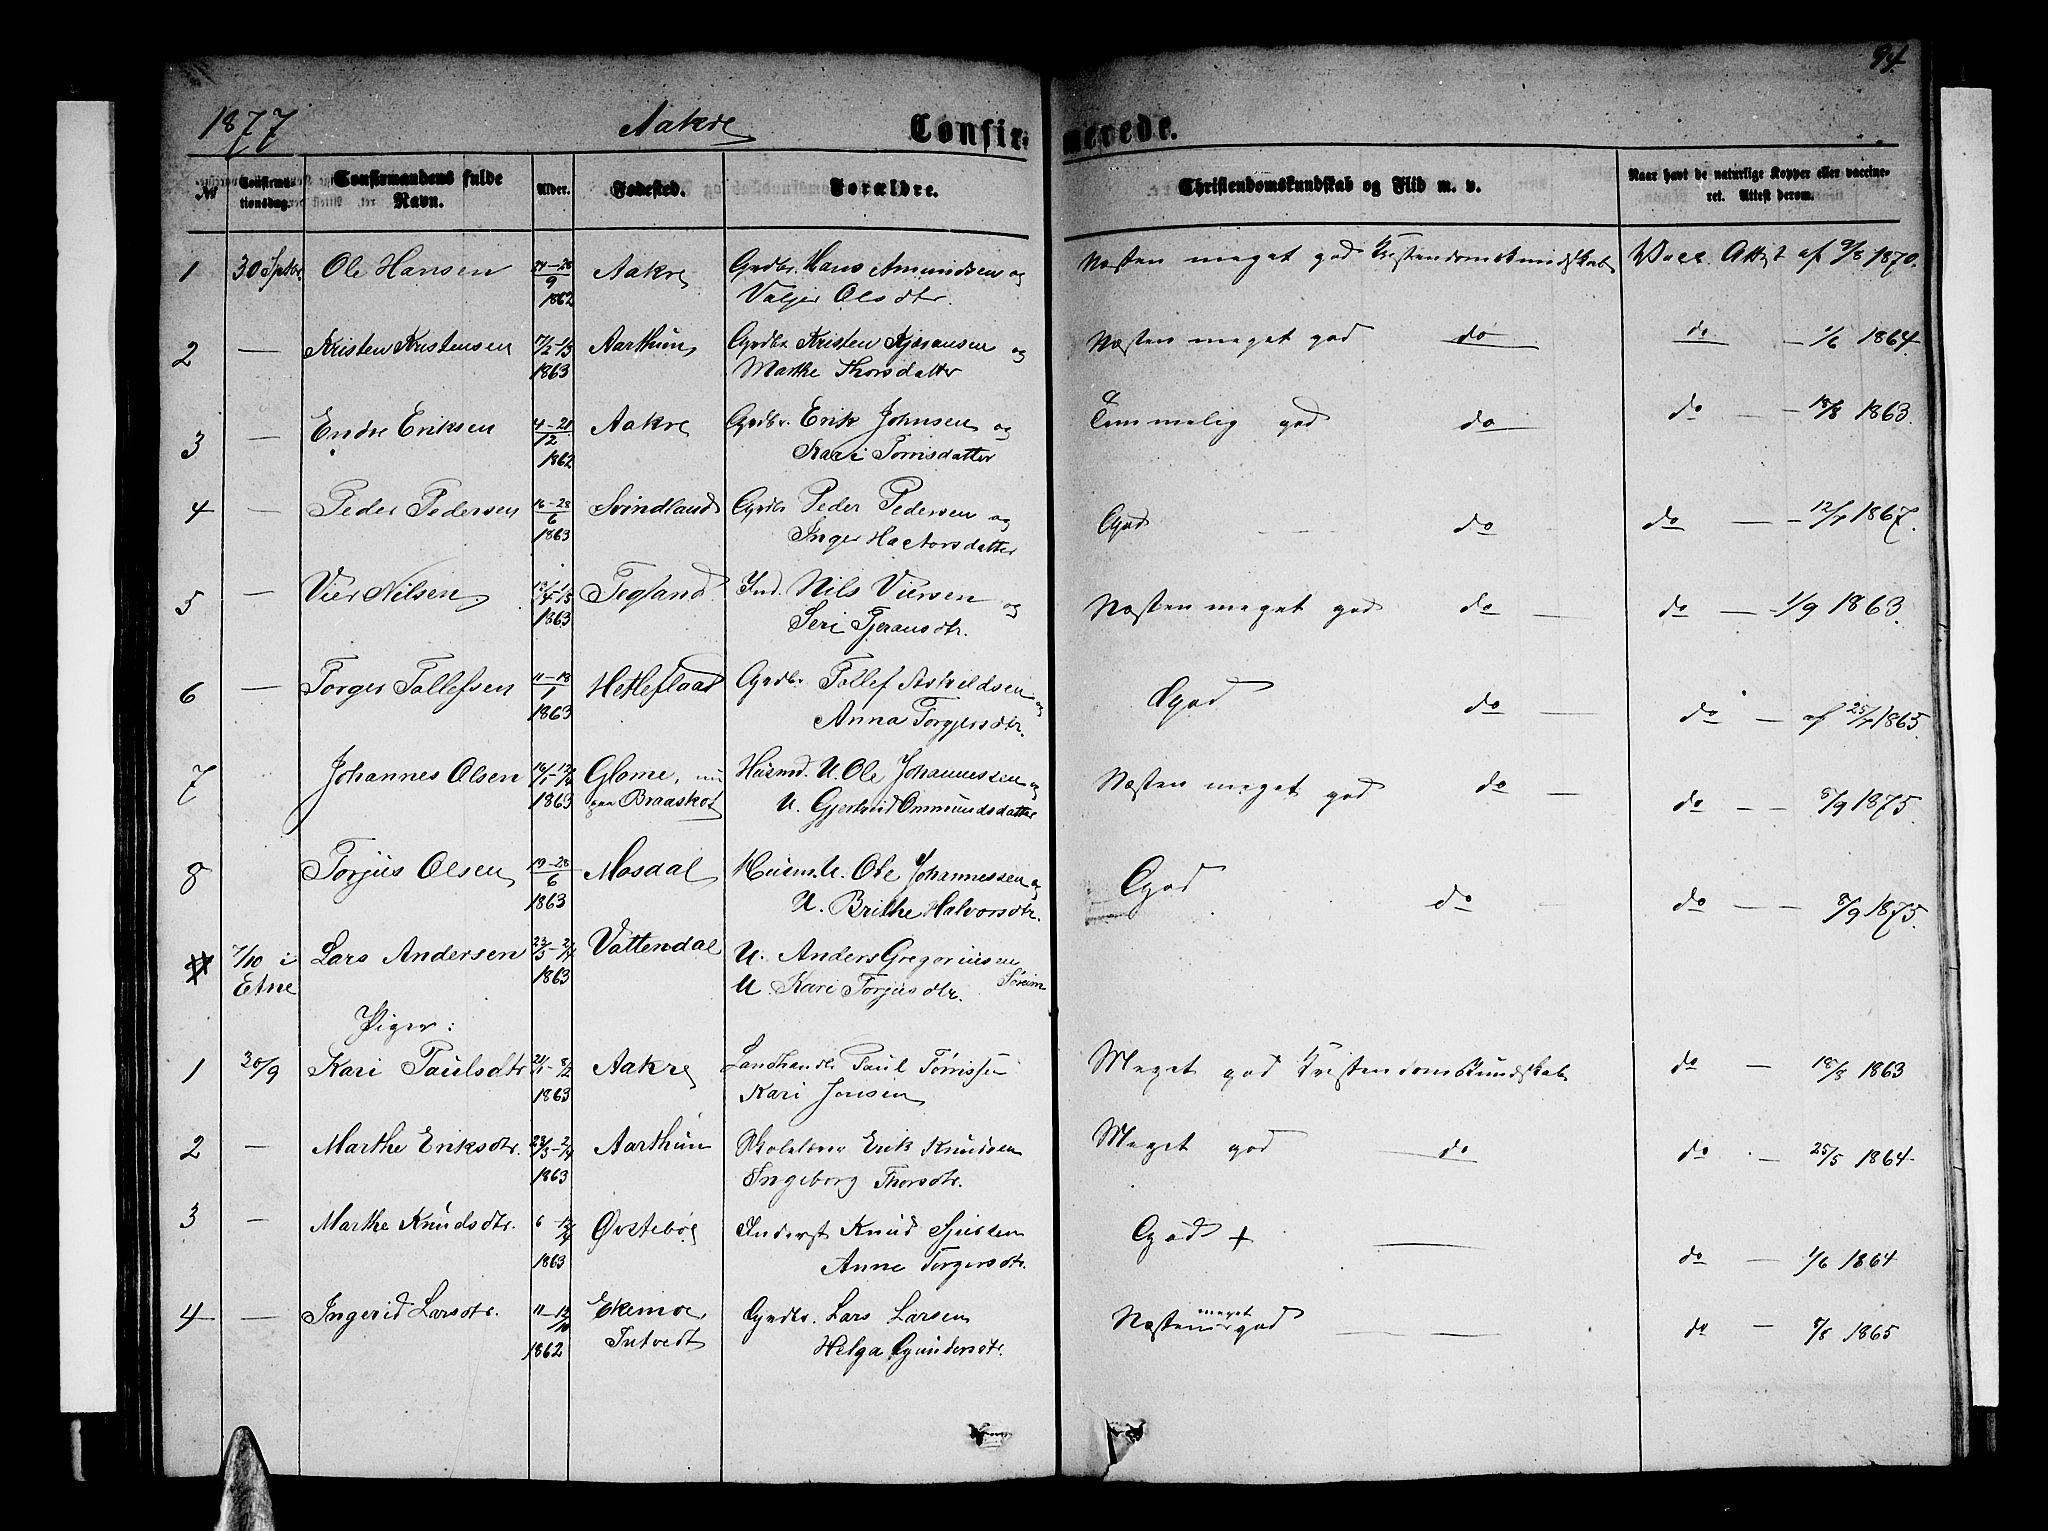 94.
1877 Aakre Confir- merede.
No Confirmationsdag. Confirmandens fulde Navn. Alder. Fødested. Forældre. Christendomskundskab og Flid m. v. Naar havt de naturlige Kopper eller vaccineret. Attest derom.
1 30 Septbr Ole Hansen 24-28/9 1862 Aakre Grdbr. Hans Amundsen og Næsten meget god Kristendomskundskab Vacc. Attest af 9/8 1870.
Valjer Olsdtr.
2 — Kristen Kristensen 17/2-15 1863 Aarthun Grdbr Kristen Kjæransen og Næsten meget god do do — 1/6 1864.
Marthe Thorsdatter
3 — Endre Eriksen 4-21/12 1862 Aakre Grdbr. Erik Johnsen og Temmelig god do do — 18/8 1863.
Kari Tørrisdatter
4 — Peder Pedersen 16-28/6 1863 Svindland Grdbr Peder Pedersen og God do do — 12/7 1867.
Inger Hactorsdatter
5 — Vier Nilsen 1863 Tegland Ind. Nils Viersen og Næsten meget god do — do — 1/9 1863.
Seri Tjeransdtr.
6 — Torger Tollefsen 11-18/1 1863 Hetleflaad Grdbr Tollef Askildsen og God do — do — af 25/7 1865.
Anna Torgjersdtr.
7 Johannes Olsen 1863 Glome, nu Husmd. U. Ole Johannessen og Næsten meget god do — do — 8/9 1875.
paa Braaskot U. Gjertrud Ommundsdatter
8 Torjus Olsen 19-28/6 1863 Mosdal Husm. U. Ole Johannessen og God do do — 8/9 1875.
U. Brithe Halvorsdtr.
7/10 i Etne Lars Andersen 23/3-2/4 1863 Vattendal U. Anders Gregoriussen
U. Kari Torjusdtr. Søreim
Piger:
1 30/9 Kari Paulsdtr 21/1-8/2 1863 Aakre Landhandler Paul Tørrissen Meget god Kristendomskundskab do — 18/8 1863
Kari Jonsen
2 — Marthe Eriksdtr. 23/3-2/4 1863 Aarthun Skolelærer Erik Knudsen Meget god do do — 25/5 1864
Ingeborg Thorsdtr.
3 — Marthe Knudsdtr. 6-12/4 1863 Østebø Inderst Knud Sjursen God + — do — 1/6 1864
Anne Torgersdtr.
4 — Ingerid Larsdtr. 11-19/10 1862 Ekemoe Grdbr. Lars Larsen Næsten meget god — do — 8/8 1865
Tutvedt Helga Gundersdtr.